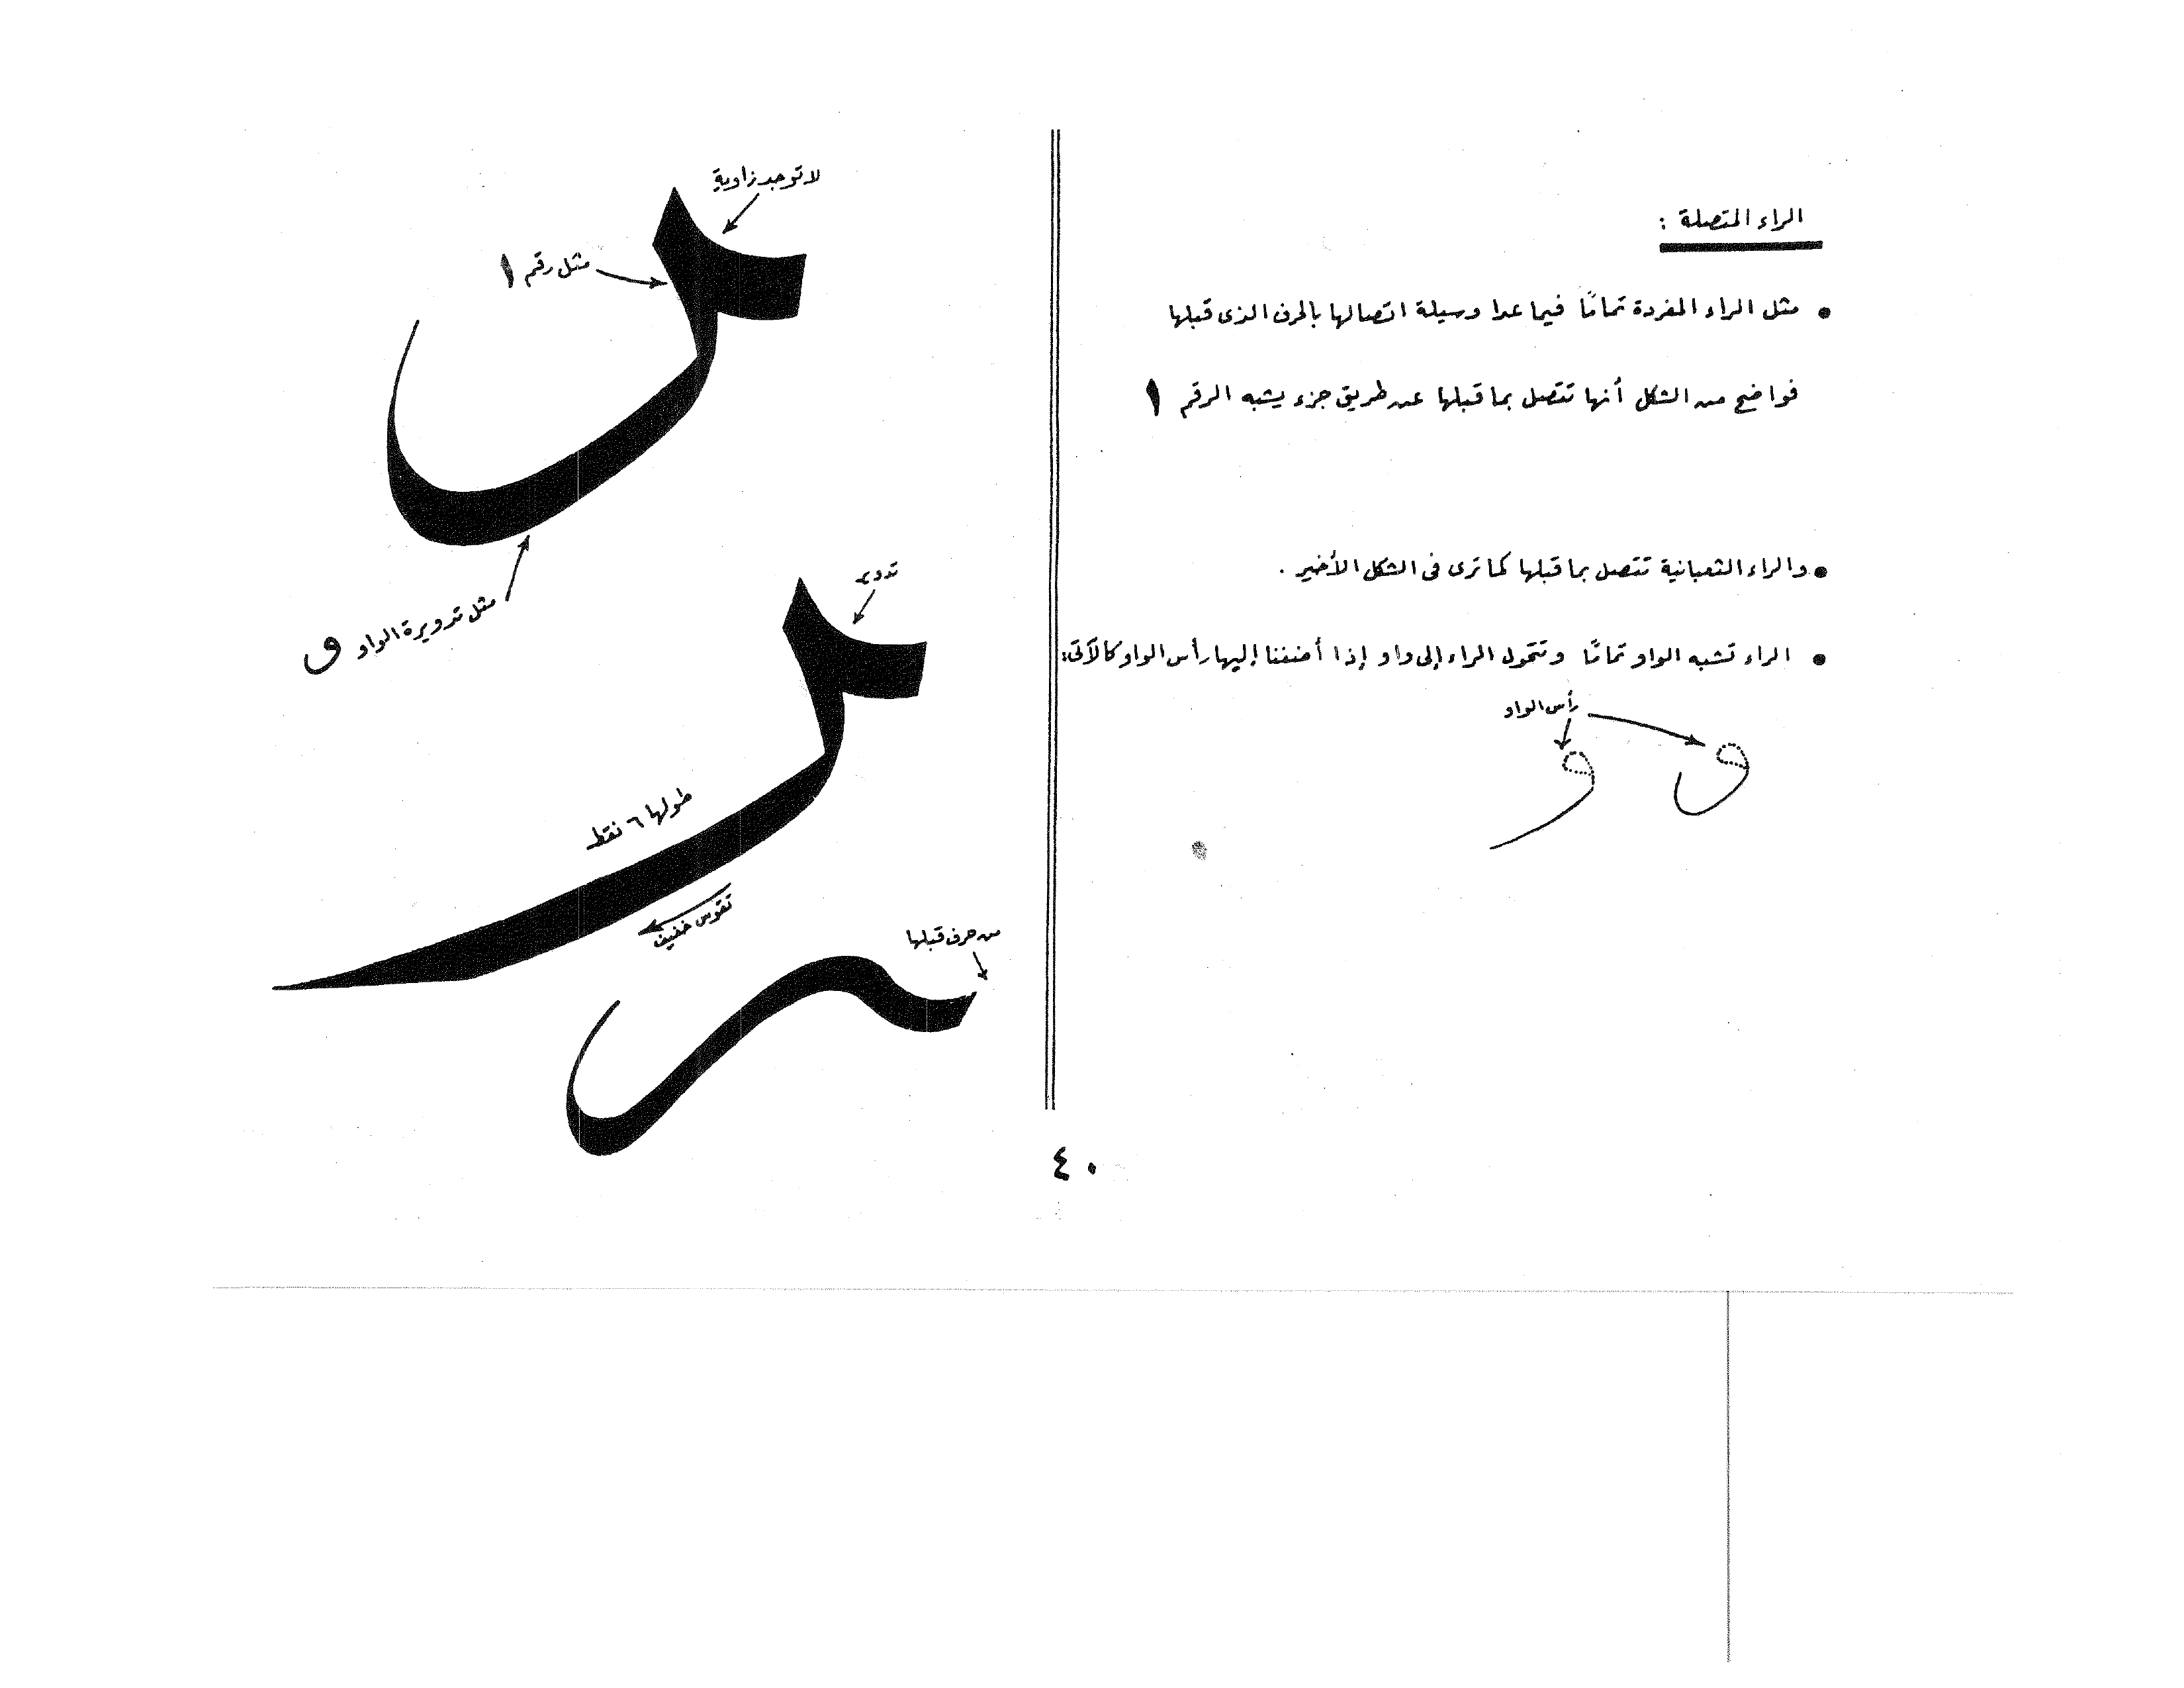 الراء المتصلة :
● مثل الراء المفردة تمامًا فيما عدا وسيلة اتصالها بالحرف الذى قبلها
فواضح من الشكل أنها تتصل بما قبلها عن طريق جزء يشبه الرقم ١
● والراء الثعبانية تتصل بما قبلها كما ترى فى الشكل الأخير .
● الراء تشبه الواو تمامًا وتتحول الراء إلى واو إذا أضفنا إليها رأس الواو كالآتى:
رأس الواو
و و
لا توجد زاوية
مثل رقم ١
ر
مثل تدويرة الواو و
تدوير
ر
طولها ٦ نقط
تقوس خفيف
من حرف قبلها
ر
٤٠